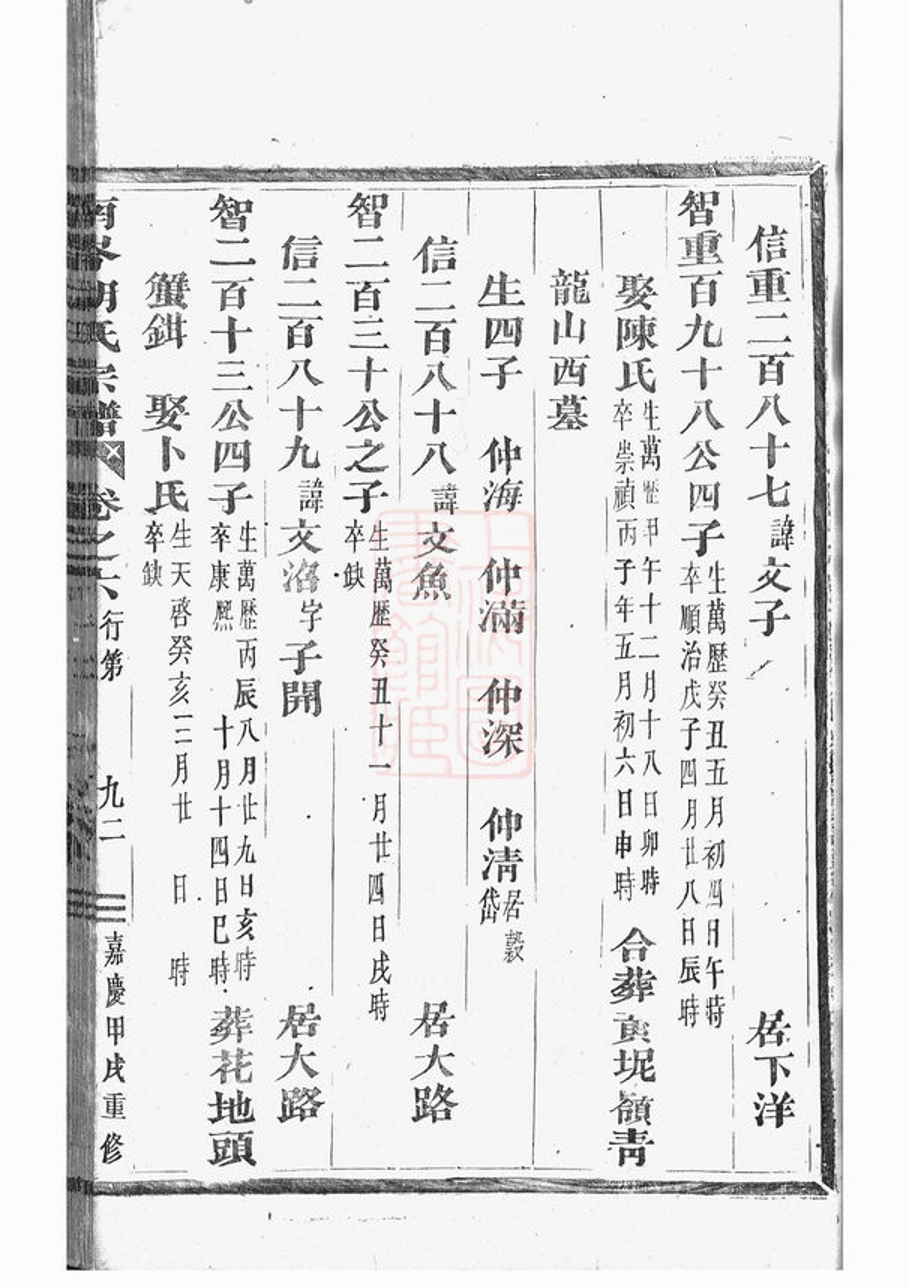 信重二百八十七 諱文子 居下洋
智重百九十八公四子 生萬歷癸丑五月初四日午時 卒順治戊子四月廿八日辰時
娶陳氏 生萬歷甲午十二月十八日卯時 卒崇禎丙子年五月初六日申時 合葬黃坭嶺青
龍山西墓
生四子 仲海 仲滿 仲深 仲清 居穀岱
信二百八十八 諱文魚 居大路
智二百三十公之子 生萬歷癸丑十一月廿四日戌時 卒缺
信二百八十九 諱文洺字子開 居大路
智二百十三公四子 生萬歷丙辰八月廿九日亥時 卒康熙 十月十四日巳時 葬花地頭
蟹鉗 娶卜氏 生天啓癸亥三月廿 日 時 卒缺
胡氏宗譜 卷之六 行第 九二 嘉慶甲戌重修